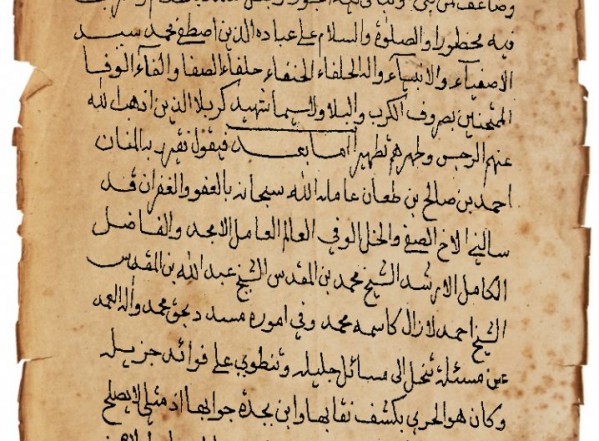 فيه محظورا والصلوة والسلام على عباده الذين اصطفى محمد سيد
الاصفيآء والانبيآء واله الخلفاء الحنفاء حلفاء الصفا والفآء الوفا
الممتحنين بصروف الكرب والبلا ولاسيما شهيد كربلا الذين اذهب الله
عنهم الرجس وطهرهم تطهيرا اما بعد فيقول فقير ربه المنان
احمد بن صالح بن طعان عامله الله سبحانه بالعفو والغفران قد
سالني الاخ الصفي والخل الوفي العالم العامل الامجد والفاضل
الكامل الارشد الشيخ محمد بن المقدس الشيخ عبد الله بن المقدس
الشيخ احمد لازال كاسمه محمد وفي اموره مسدد بحق محمد واله العمد
عن مسئلة تنحل الى مسائل جليله وتنطوي على فوائد جزيله
وكان هو الحري بكشف نقابها وابن بجدة جوابها اذ مثلي لا يصلح